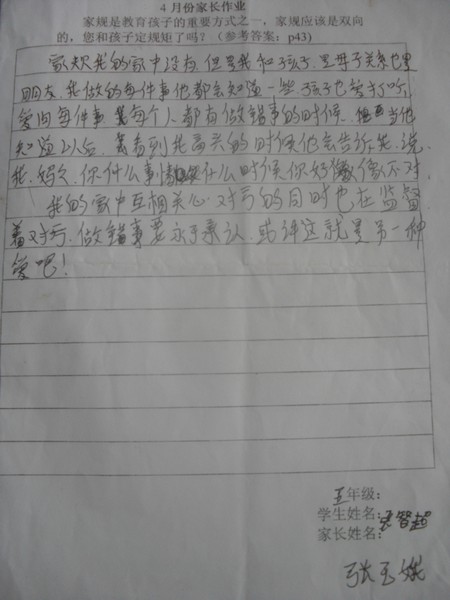 4月份家长作业
家规是教育孩子的重要方式之一,家规应该是双向
的,您和孩子定规矩了吗?(参考答案:p43)
家规我的家中没有,但是我和孩子是母子关系也是
朋友,我做的每件事他都会知道一些,孩子也爱打听,
爱问每件事,每个人都有做错事的时候,当他
知道以后,看到我高兴的时候他会告诉我,说
我,妈妈,你什么事情什么时候你好像不对.
我的家中互相关心对方的同时也在监督
着对方.做错事要永于承认.或许这就是另一种
爱吧!
五年级:
学生姓名:智超
家长姓名:
张玉